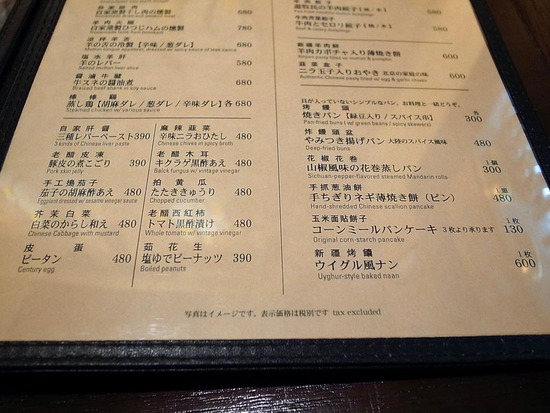 自家製干し肉の燻製 580
羊肉火腿
自家燻製ひつじハムの燻製 780
涼拌羊舌
羊の舌の冷製【辛味/葱ダレ】 680
塩水羊肝
羊のレバー 580
Salted mutton liver slice
醤滷牛腱
牛スネの醤油煮 680
Braised beef shank in soy sauce
棒棒鶏
蒸し鶏【胡麻ダレ/葱ダレ/辛味ダレ】各 680
Steamed chicken w/ various sauce
自家肝醤
三種レバーペースト 390
3 kinds of Chinese liver paste
老醋皮凍
豚皮の煮こごり 390
Pork skin jelly
手工搗茄子
茄子の胡麻酢あえ 480
Eggplant dressed w/ sesame vinegar sauce
芥茉白菜
白菜のからし和え 480
Chinese Cabbage with mustard
皮蛋
ピータン 480
Century egg
麻辣韮菜
辛味ニラおひたし 480
Chinese chives, spicy broth
老醋木耳
キクラゲ黒酢あえ 480
Balck fungus w/ vintage vinegar
拍黄瓜
たたききゅうり 480
Chopped cucumber
老醋西紅柿
トマト黒酢漬け 480
Whole tomato w/ vintage vinegar
茹花生
塩ゆでピーナッツ 390
Boiled peanuts
牛肉芹菜餃子
牛肉とセロリ餃子 580
新疆羊肉餅
羊肉カボチャ入り薄焼き餅 600
韮菜盒子
ニラ玉子入りおやき 北京の家庭の味 600
具が入っていないシンプルなパン。お料理と一緒どうぞ。
烤饅頭
焼きパン【緑豆入り/スパイス串】 各 300
Pan-fried buns ( w/ green beans / spicy skewers)
炸饅頭盆
やみつき揚げパン 大陸のスパイス風味 480
Deep-fried buns
花椒花巻
山椒風味の花巻蒸しパン 1個 300
Sichuan-pepper-flavored steamed Mandarin rolls
手抓葱油餅
手ちぎりネギ薄焼き餅(ピン) 1皿 480
Hand-shredded Chinese scallion pancake
玉米面貼餅子
コーンミールパンケーキ 3枚より承ります 1枚 130
Original corn-starch pancake
新疆烤饢
ウイグル風ナン 1枚 600
Uyghur-style baked naan
写真はイメージです。表示価格は税別です tax excluded